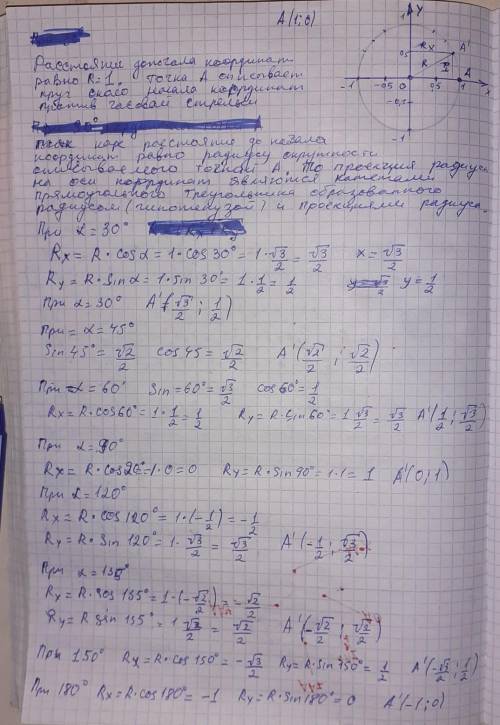 A(1;0)
Расстояние до начала координат
равно R=1. точка A описывает
круг около начала координат
против часовой стрелки
так как расстояние до начала
координат равно радиусу окружности
описываемого точкой A. То проекция радиуса
на оси координат являются катетами
прямоугольного треугольника образованного
радиусом (гипотенузой) и проекциями радиуса.
При α=30°
Rx = R·cosα = 1·cos30° = 1·√3/2 = √3/2 x = √3/2
Ry = R·sinα = 1·sin 30° = 1·1/2 = 1/2 y = 1/2
При α=30° A'(√3/2; 1/2)
При = α=45°
Sin45° = √2/2 cos45 = √2/2 A'(√2/2; √2/2)
При α=60° Sin=60° = √3/2 cos60° = 1/2
Rx = R·cos60° = 1·1/2 = 1/2 Ry = R·Sin60° = 1√3/2 = √3/2 A'(1/2; √3/2)
При α=90°
Rx = R·cos90°=1·0=0 Ry = R·Sin90° = 1·1 = 1 A'(0;1)
При α=120°
Rx = R·cos120° = 1·(-1/2) = -1/2
Ry = R·Sin 120° = 1·√3/2 = √3/2 A'(-1/2; √3/2)
При α=135°
Rx = R·cos135° = 1·(-√2/2) = -√2/2
Ry = R sin 135° = 1 √2/2 = √2/2 A'(-√2/2; √2/2)
При 150° Rx = R·cos150° = -√3/2 Ry = R·Sin150° = 1/2 A'(-√3/2; 1/2)
При 180° Rx = R·cos180° = -1 Ry = R·Sin180° = 0 A'(-1;0)
1
Y
0,5
Rx
A'
R
A
-1
-0,5
0
0,5
1
X
-0,5
-1